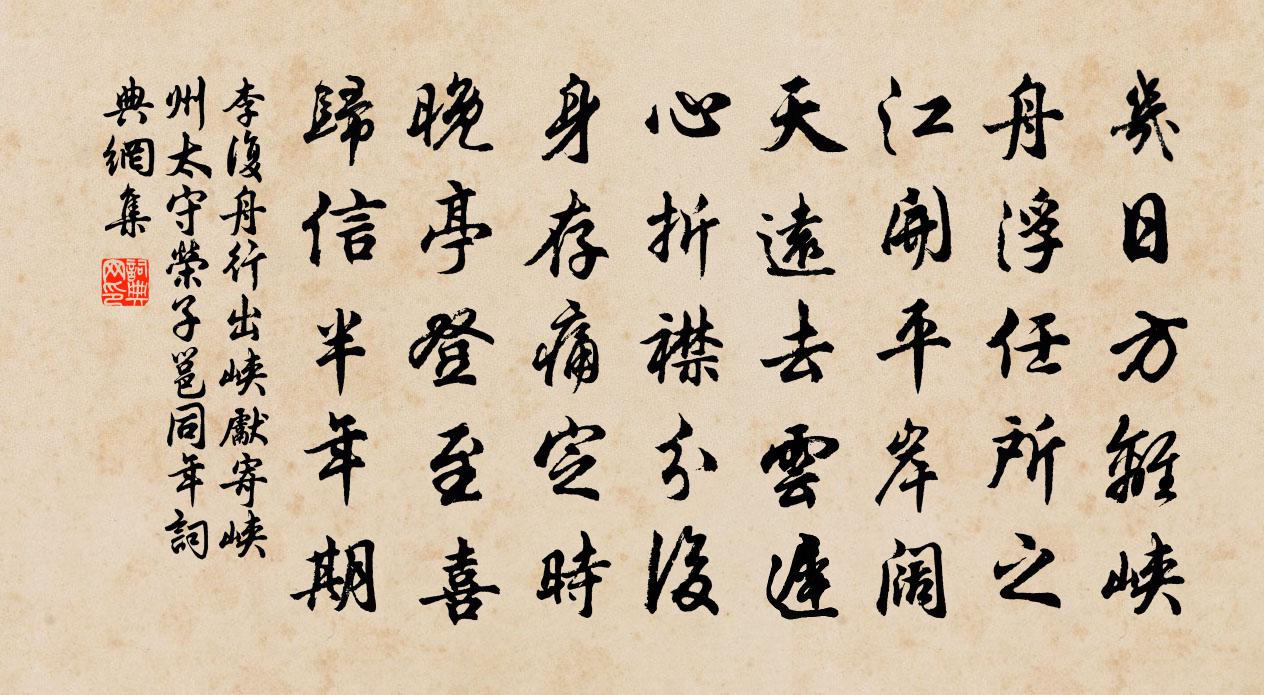 幾日方離峽
舟浮任所之
江開平岸闊
天遠去雲遲
心折襟分後
身存痛定時
晚亭登至喜
歸信半年期
李復舟行出峽獻寄峽
州太守榮子邕同年詞
典網集
詞典網印